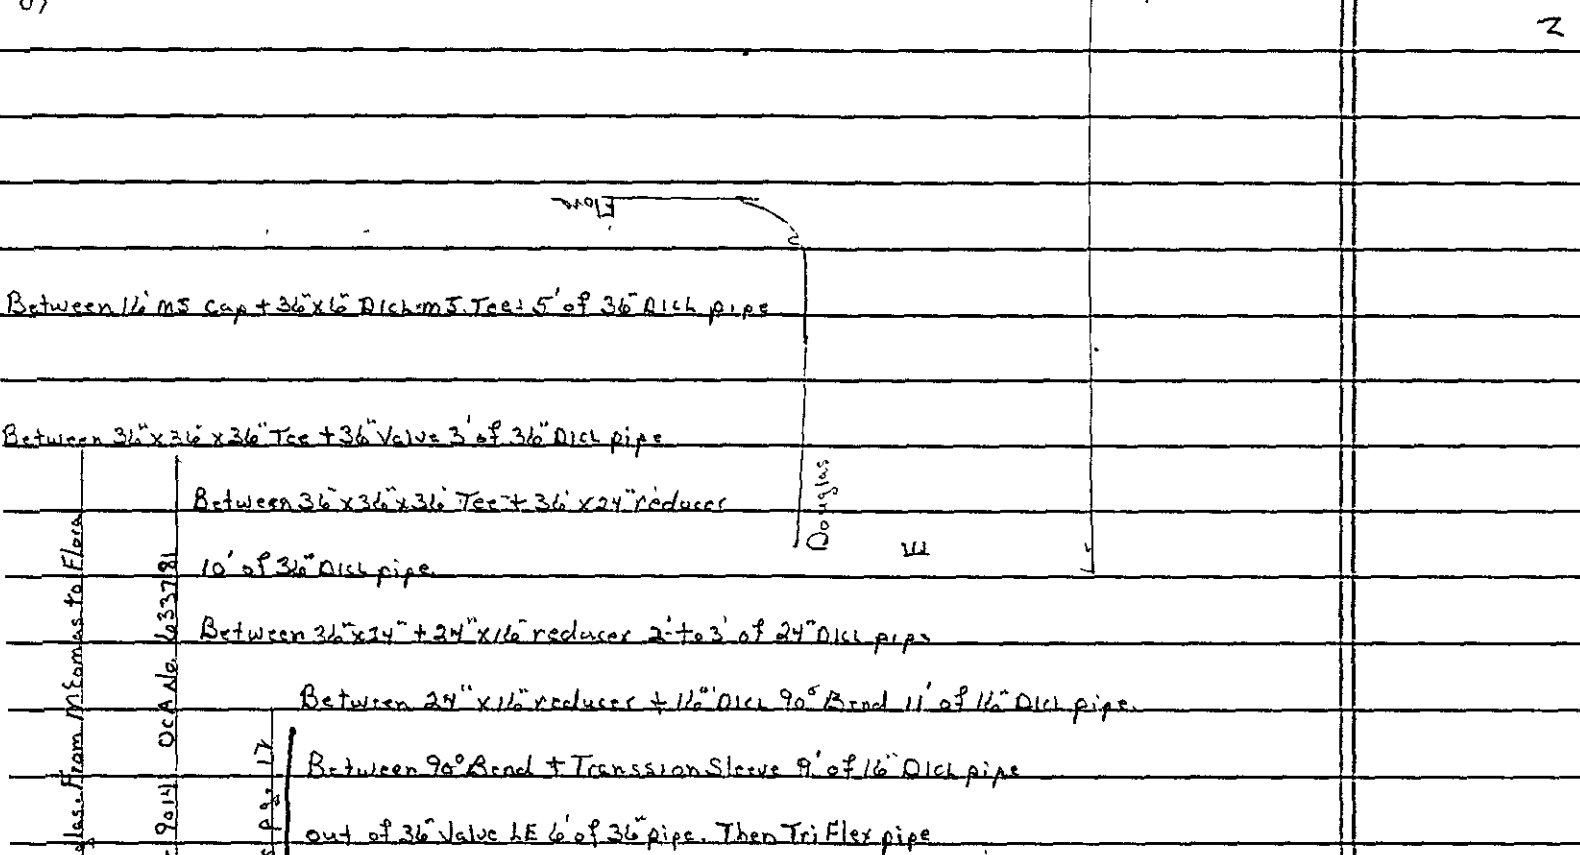 Flora
Between 16" MJ Cap + 36"x6" DICL MJ Tee = 5' of 36" DICL pipe
Between 36"x36"x36" Tee + 36" Valve 3' of 36" DICL pipe
Between 36"x36"x36" Tee + 36"x24" reducer
10' of 36" DICL pipe.
Between 36"x24" + 24"x16" reducer 2' to 3' of 24" DICL pipe
Between 24"x16" reducer + 16" DICL 90° Bend 11' of 16" DICL pipe.
Between 90° Bend + Transsion Sleeve 9' of 16" DICL pipe
out of 36" Valve LE 6' of 36" pipe. Then Tri Flex pipe
Douglas
E
glas. From McComas to Flora
9014 OCA No. 633781
pg. 17